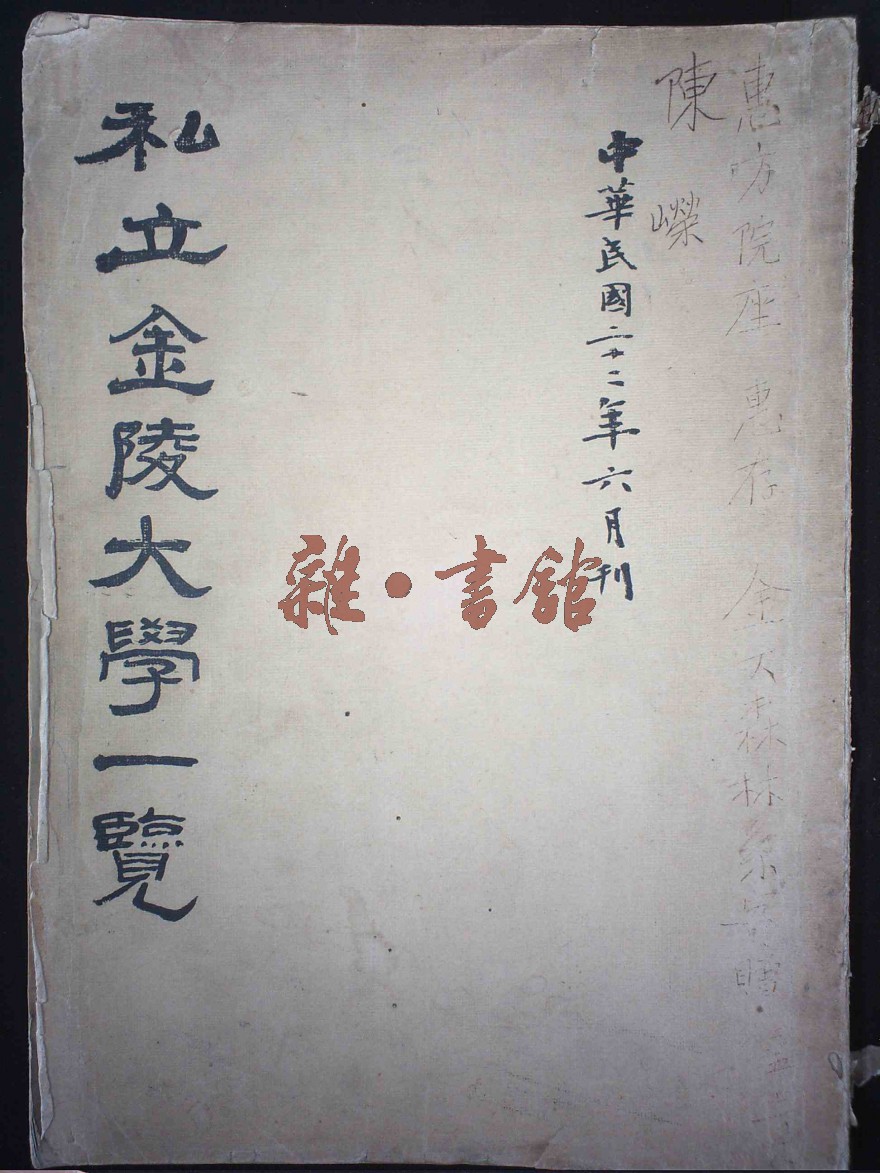 惠 院座 惠存 金大森林系 贈
陳嶸
中華民國二十二年六月刊
雜·書館
私立金陵大學一覽